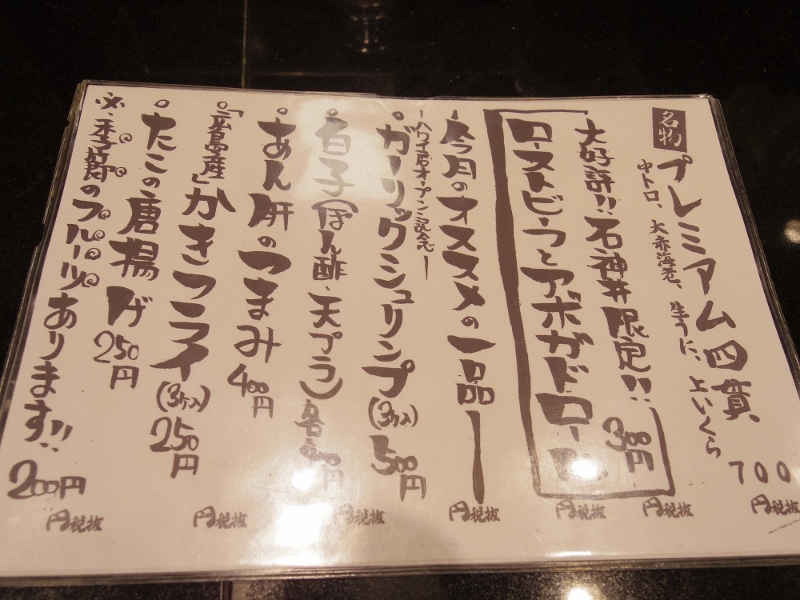 名物 プレミアム四貫 700
中トロ、大赤海老、生うに、上いくら
大好評!!石神井限定!!
ローストビーフとアボガドロール 300円
―今月のオススメの一品―
―ハワイ店オープン記念―
ガーリックシュリンプ(3ケ入) 500円
白子(ぽん酢・天プラ)各 円
あん肝のつまみ 400円
「広島産」かきフライ(3ケ入) 250円
たこの唐揚げ 250円
※・季節のフルーツあります!! 200円
円税抜
円税抜
円税抜
円税抜
円税抜
円税抜
円税抜